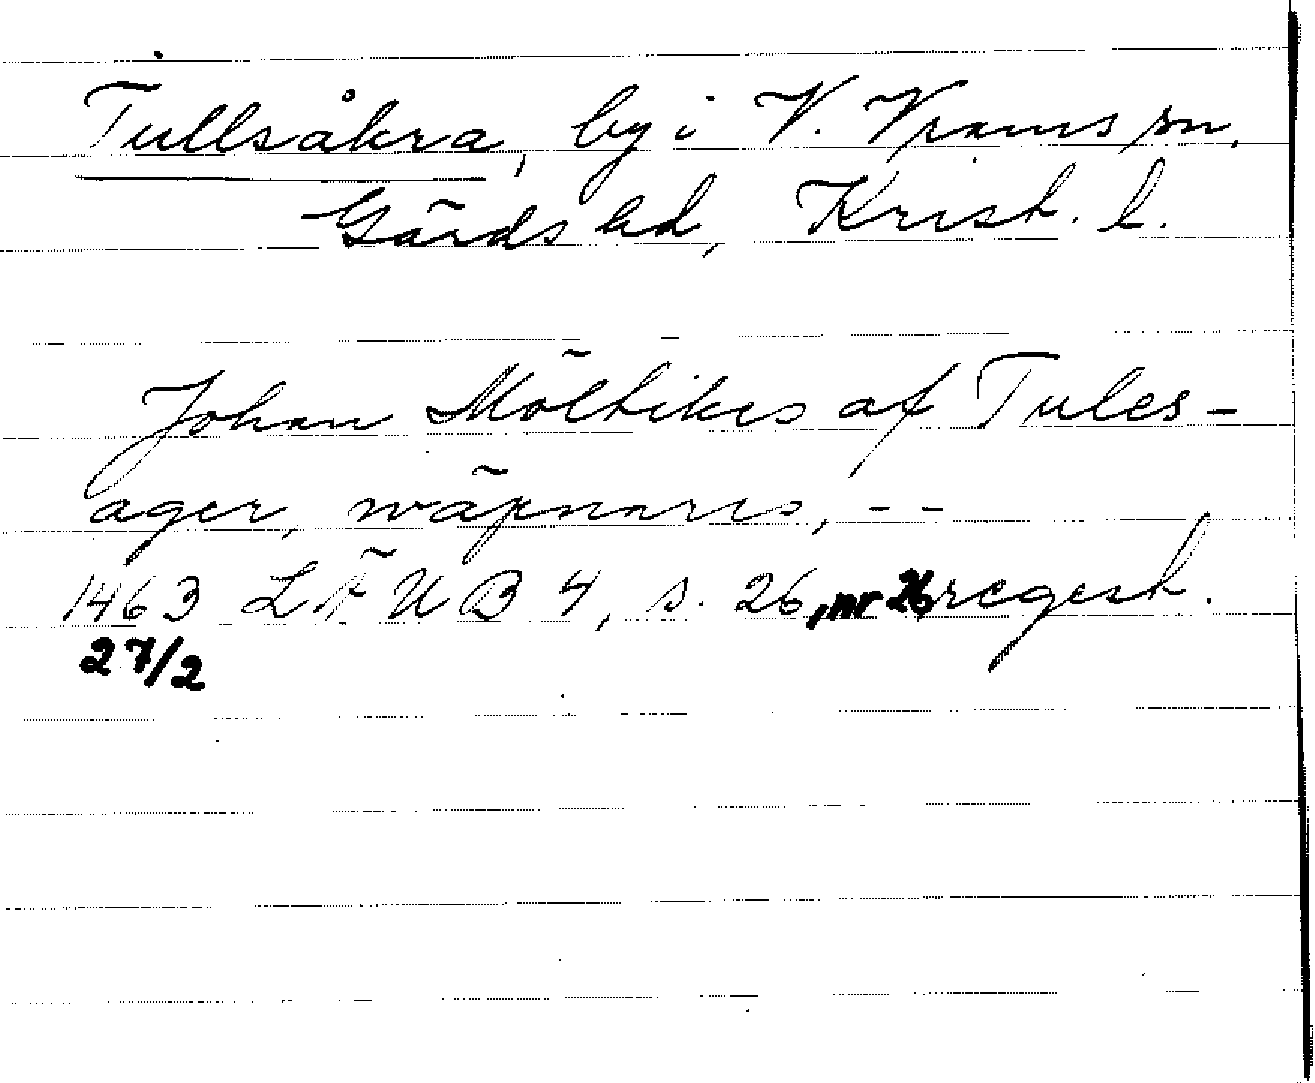 Tullsåkra, by i V. Vrams sn,
Gärds hd, Krist. l.
Johan Möltikes af Tules-
ager, wäpnares, --
1463 LÄUB 4, s. 26, nr 26 regest.
27/2